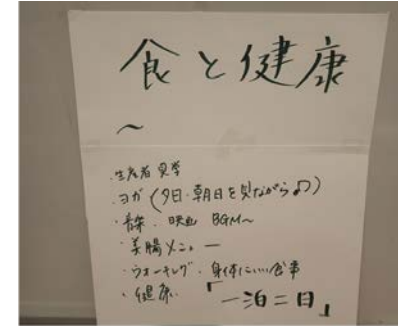 食と健康
～
・生産者見学
・ヨガ(夕日・朝日を見ながら♫)
・音楽、映画 BGM～
・美腸メニュー
・ウォーキング、身体にいい食事
・健康
「一泊二日」